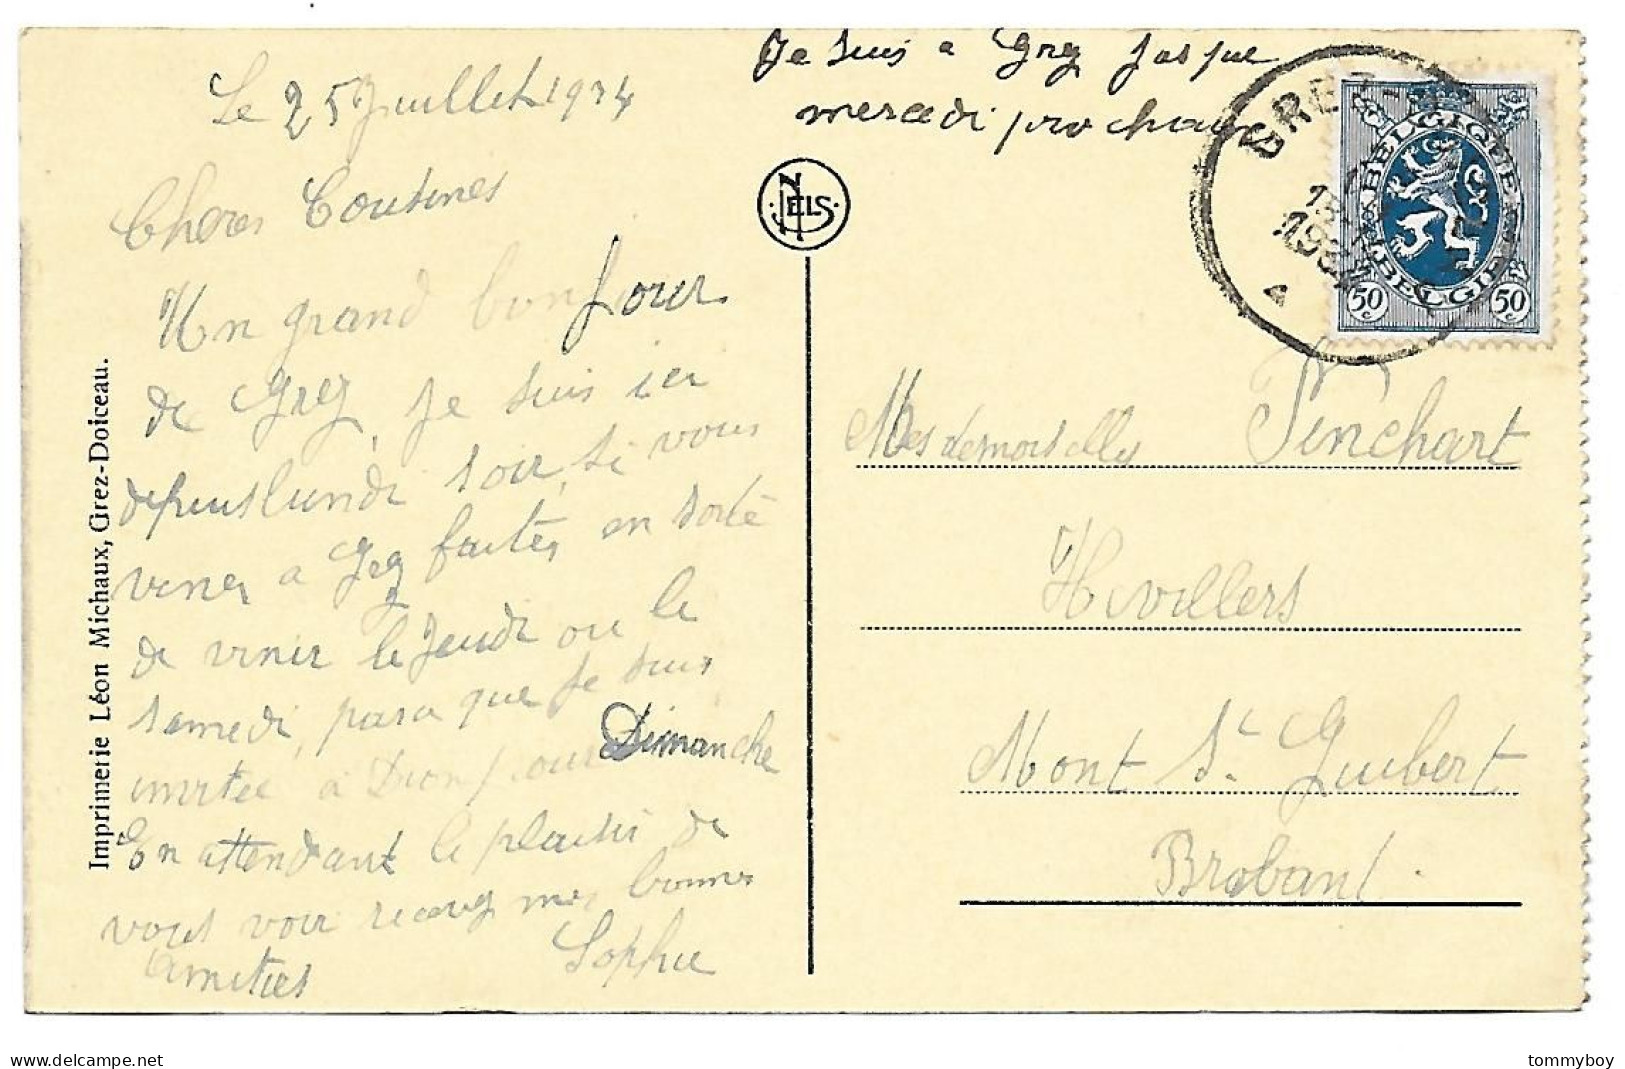 Je suis a Grez jusque
mercredi prochain
Le 25 Juillet 1934
Chères Cousines
Un grand bonjour
de Grez, je suis ici
depuis lundi soir, si vous
vener a Grez faites en sorte
de venir le Jeudi ou le
samedi, parce que je suis
invitée à Dion pour Dimanche
En attendant le plaisir de
vous voir recevez mes bonnes
Amitiés Sophie
Imprimerie Léon Michaux, Grez-Doiceau.
NELS
GREZ
1934
BELGIQUE
BELGIE
50 c 50 c
Mesdemoiselles Pinchart
Hévillers
Mont St Guibert
Brabant.
tommyboy